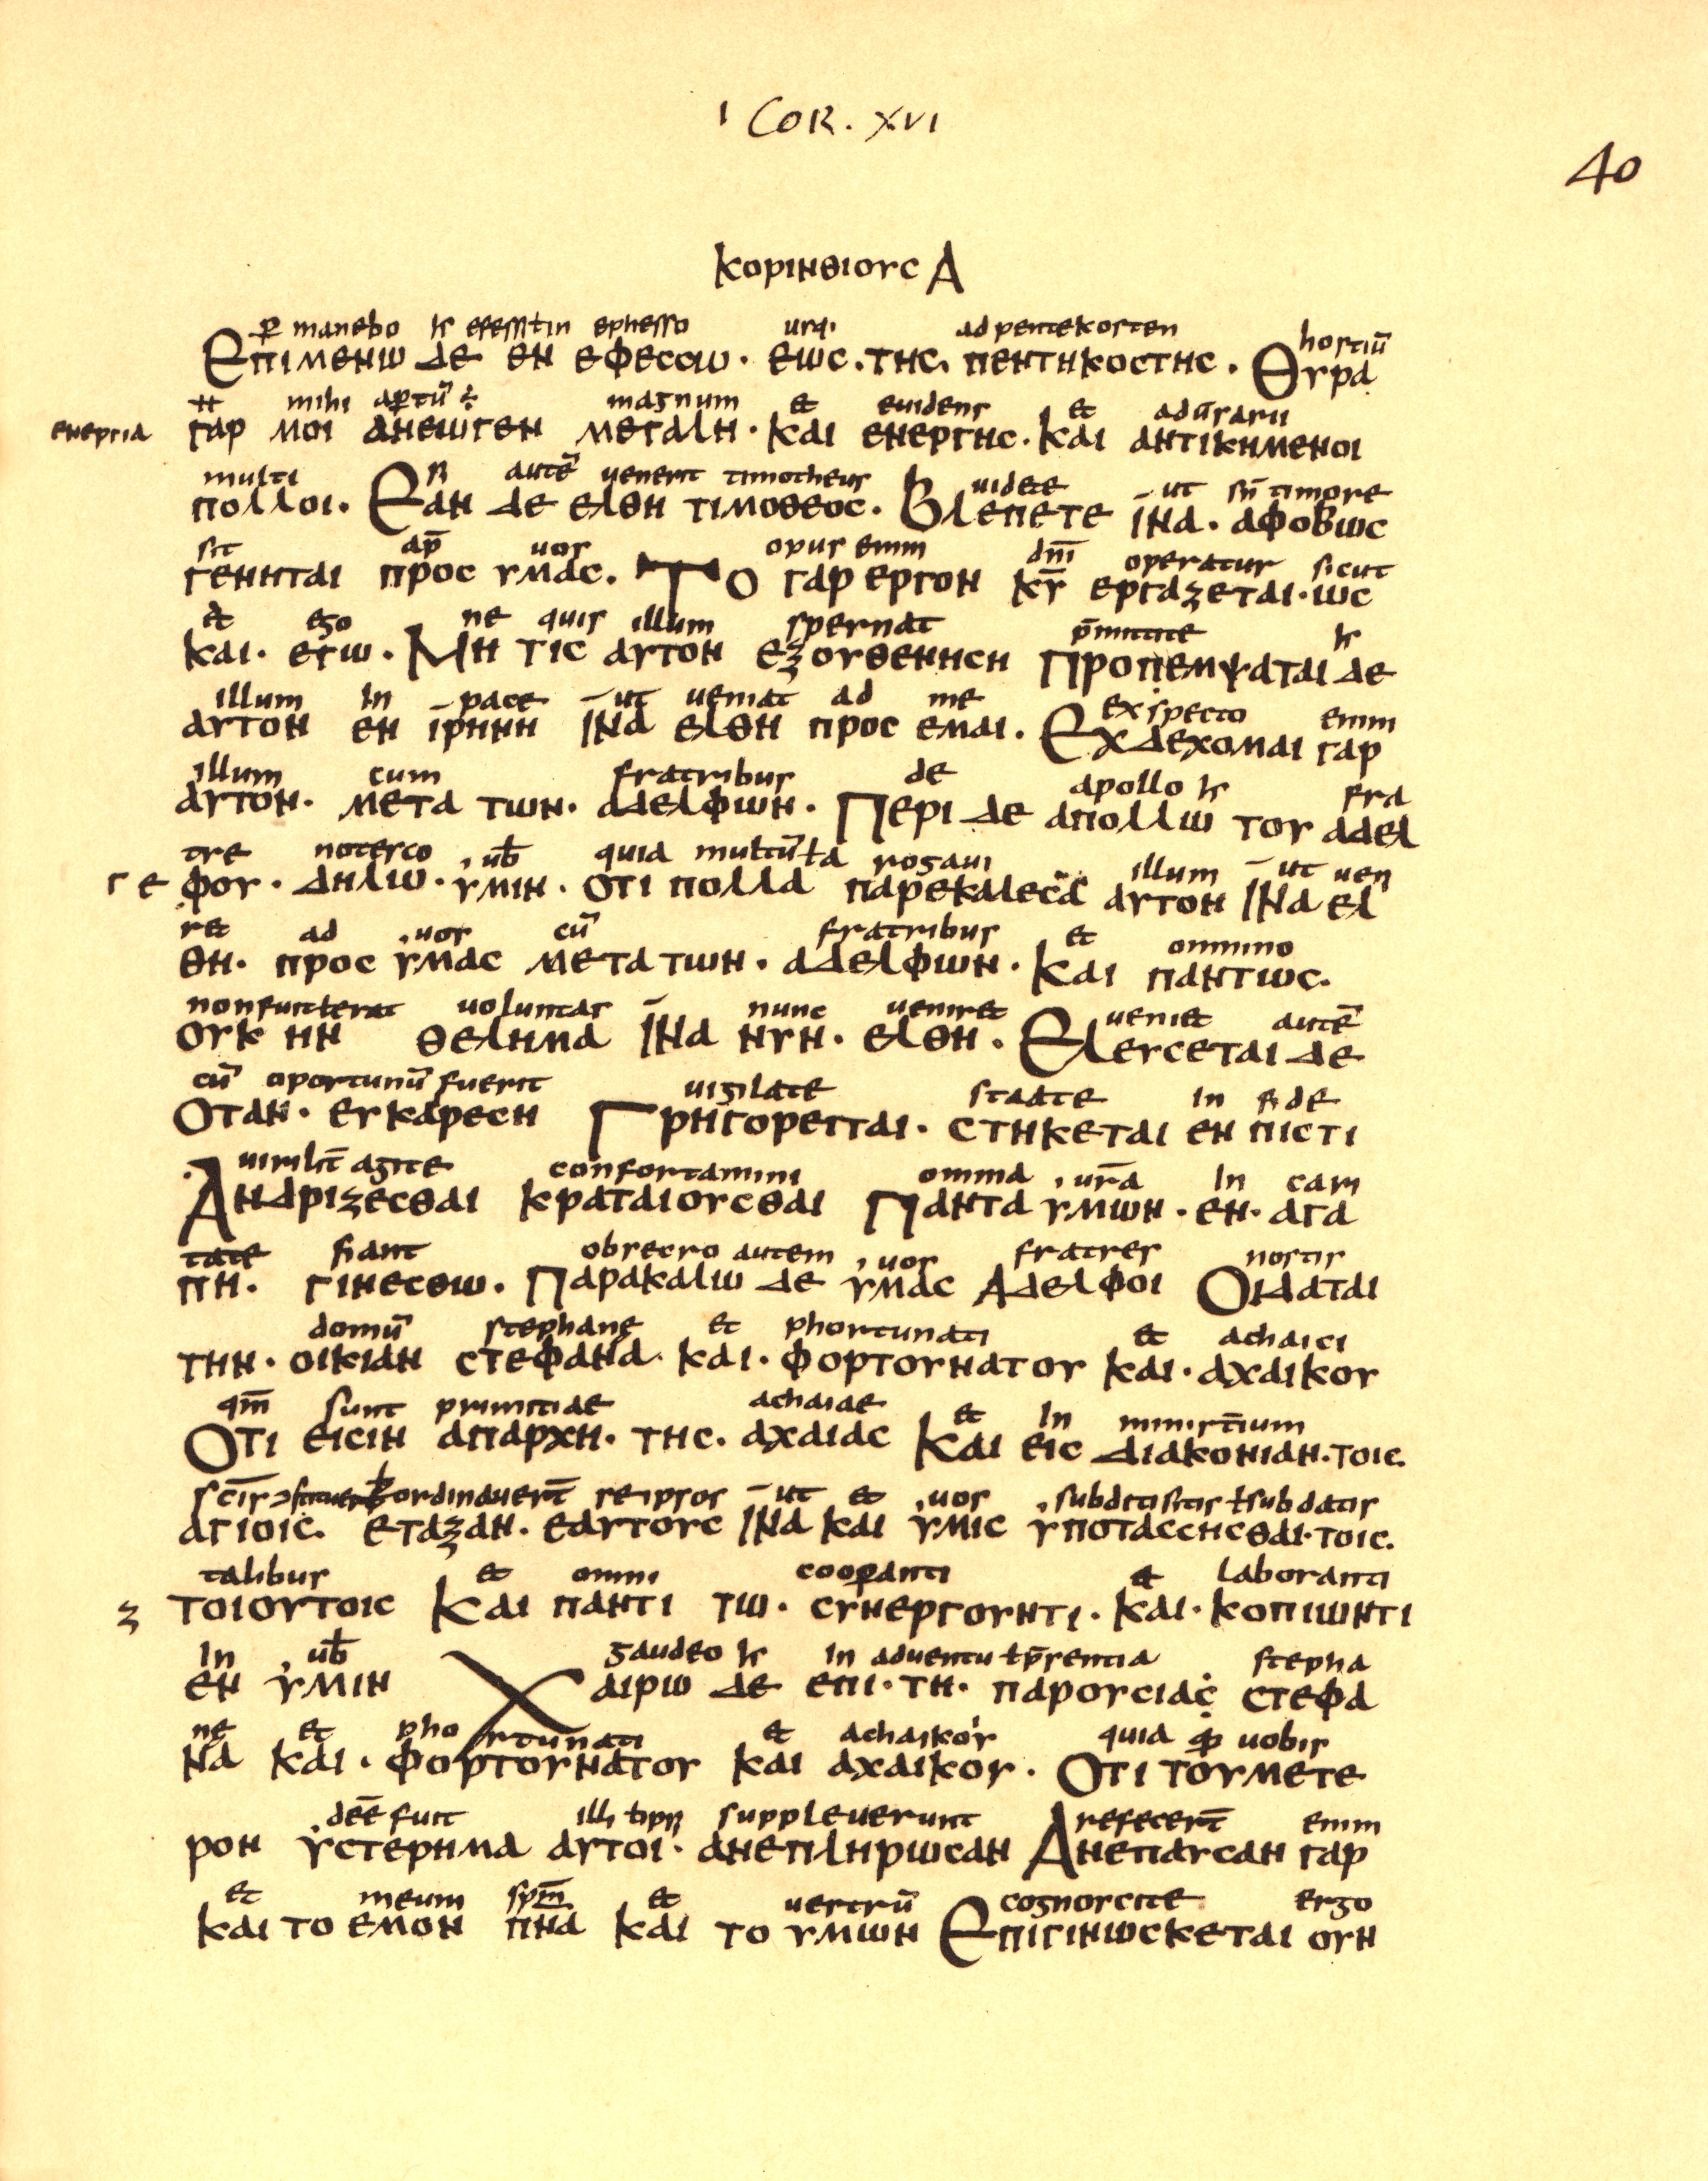 1 COR. XVI
40
ΚΟΡΙΝΘΙΟΥC Α
manebo ephesso usq. ad pentekosten hostiū
ΕΠΙΜΕΝω ΔΕ ΕΝ ΕΦΕCCω · ΕωC · ΤΗC · ΠΕΝΤΗΚΟCΤΗC · ΘΥΡΑ
mihi magnum et euidens et
ΕΝΕΡΓΙΑ ΓΑΡ ΜΟΙ ΑΝΕωΓΕΝ ΜΕΓΑΛΗ · ΚΑΙ ΕΝΕΡΓΗC · ΚΑΙ ΑΝΤΙΚΗΜΕΝΟΙ
multi autē uenerit timotheus uidete ut timore
ΠΟΛΛΟΙ · ΕΑΝ ΔΕ ΕΛΘΗ ΤΙΜΟΘΕΟC · ΒΛΕΠΕΤΕ ΙΝΑ · ΑΦΟΒωC
sit ap̄ uos opus enim dn̄i operatur sicut
ΓΕΝΗΤΑΙ ΠΡΟC ΥΜΑC · ΤΟ ΓΑΡ ΕΡΓΟΝ Κ̅Υ̅ ΕΡΓΑΖΕΤΑΙ · ωC
et ego ne quis illum spernat
ΚΑΙ · ΕΓω · ΜΗ ΤΙC ΑΥΤΟΝ ΕΞΟΥΘΕΝΗCΗ ΠΡΟΠΕΜΨΑΤΑΙ ΔΕ
illum in pace ut ueniat ad me exspecto enim
ΑΥΤΟΝ ΕΝ ΙΡΗΝΗ ΙΝΑ ΕΛΘΗ ΠΡΟC ΕΜΑΙ · ΕΧΔΕΧΟΜΑΙ ΓΑΡ
illum cum fratribus de apollo fra
ΑΥΤΟΝ · ΜΕΤΑ ΤωΝ · ΑΔΕΛΦωΝ · ΠΕΡΙ ΔΕ ΑΠΟΛΛω ΤΟΥ ΑΔΕΛ
tre quia rogaui illum ut uen
ΓΕ ΦΟΥ · ΔΗΛω · ΥΜΙΝ · ΟΤΙ ΠΟΛΛΑ ΠΑΡΕΚΑΛΕCΑ ΑΥΤΟΝ ΙΝΑ ΕΛ
ret ad uos cū fratribus et omnino
ΘΗ · ΠΡΟC ΥΜΑC ΜΕΤΑ ΤωΝ · ΑΔΕΛΦωΝ · ΚΑΙ ΠΑΝΤωC.
uoluntas nunc ueniret ueniet autē
ΟΥΚ ΗΝ ΘΕΛΗΜΑ ΙΝΑ ΝΥΝ · ΕΛΘΗ · ΕΛΕΥCΕΤΑΙ ΔΕ
cū oportunū fuerit uigilate state in fide
ΟΤΑΝ · ΕΥΚΑΡΕCΗ ΓΡΗΓΟΡΕΙΤΑΙ · CΤΗΚΕΤΑΙ ΕΝ ΠΙCΤΙ
agite confortamini omnia ur̄a in cari
ΑΝΔΡΙΖΕCΘΑΙ ΚΡΑΤΑΙΟΥCΘΑΙ ΠΑΝΤΑ ΥΜωΝ · ΕΝ · ΑΓΑ
tate fiant obsecro autem uos fratres nostis
ΠΗ · ΓΙΝΕCΘω · ΠΑΡΑΚΑΛω ΔΕ ΥΜΑC ΑΔΕΛΦΟΙ ΟΙΔΑΤΑΙ
domū stephanę et phortunati et achaici
ΤΗΝ · ΟΙΚΙΑΝ CΤΕΦΑΝΑ · ΚΑΙ · ΦΟΡΤΟΥΝΑΤΟΥ ΚΑΙ · ΑΧΑΙΚΟΥ
qm̄ sunt primitiae achaiae et in
ΟΤΙ ΕΙCΙΝ ΑΠΑΡΧΗ · ΤΗC · ΑΧΑΙΑC ΚΑΙ ΕΙC ΔΙΑΚΟΝΙΑΝ · ΤΟΙC.
ordinauerт̄ seipsos ut et uos subditi sitis ł subdatis
ΑΓΙΟΙC. ΕΤΑΞΑΝ · ΕΑΥΤΟΥC ΙΝΑ ΚΑΙ ΥΜΙC ΥΠΟΤΑCCΗCΘΑΙ · ΤΟΙC.
talibus et omni et laboranti
Ζ ΤΟΙΟΥΤΟΙC ΚΑΙ ΠΑΝΤΙ Τω · CΥΝΕΡΓΟΥΝΤΙ · ΚΑΙ · ΚΟΠΙωΝΤΙ
in gaudeo in aduentu stepha
ΕΝ ΥΜΙΝ ΧΑΙΡω ΔΕ ΕΠΙ · ΤΗ · ΠΑΡΟΥCΙΑC CΤΕΦΑ
ne et phortunati et achaikos quia uobis
ΝΑ ΚΑΙ · ΦΟΡΤΟΥΝΑΤΟΥ ΚΑΙ ΑΧΑΙΚΟΥ · ΟΤΙ ΤΟΥΜΕΤΕ
illi suppleuerunt refecerт̄ enim
ΡΟΝ ΥCΤΕΡΗΜΑ ΑΥΤΟΙ · ΑΝΕΠΛΗΡωCΑΝ ΑΝΕΠΑΥCΑΝ ΓΑΡ
et meum sp̄m et uestrū cognoscite ergo
ΚΑΙ ΤΟ ΕΜΟΝ ΠΝΑ ΚΑΙ ΤΟ ΥΜωΝ ΕΠΙΓΙΝωCΚΕΤΑΙ ΟΥΝ